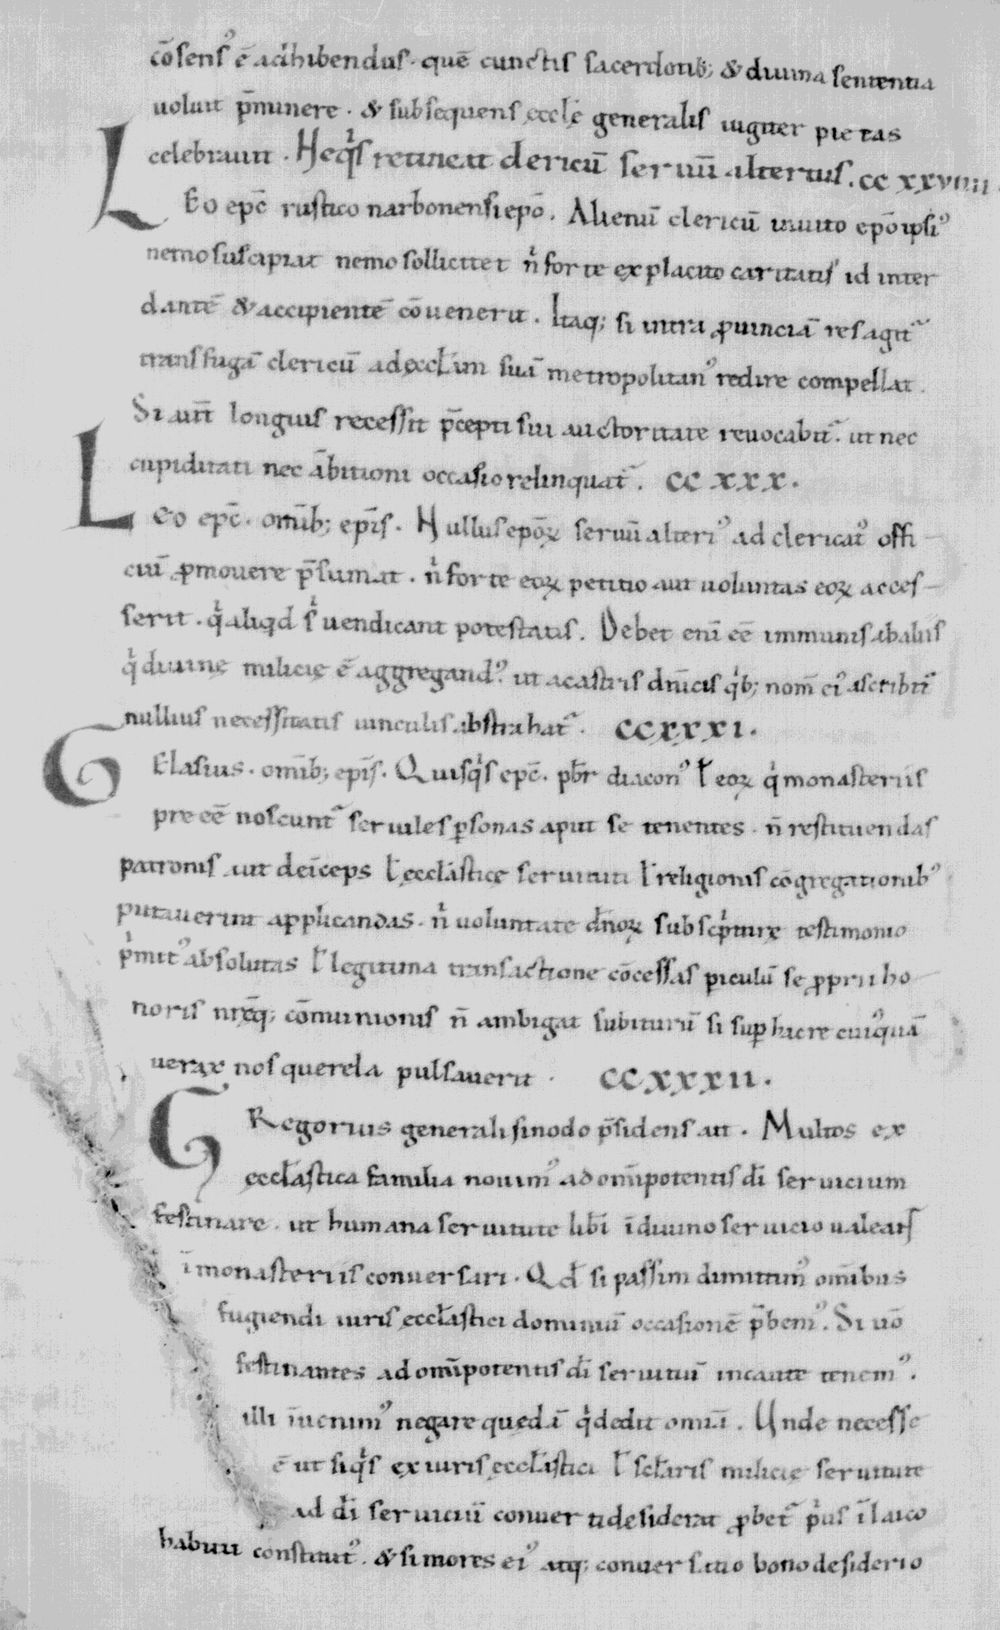 cōsens᷒ ē adhibendus · quē cunctis sacerdotib; & diuina sententia
uoluit p̄minere · & subsequens ęcclę generalis iugiter pietas
celebrauit · Neq͛s retineat clericū seruū alterius. cc xxviiii
LEo epc̄ rustico narbonensi epō. Alienū clericū inuito epō ipsi᷒
nemo suscipiat nemo sollicitet n̄ forte ex placito caritatis id inter
dantē & accipientē cōuenerit. Itaq; si intra ꝓuinciā res agit᷑
transfugā clericū ad ęccłim suā metropolitan᷒ redire compellat.
Si aut̄ longius recessit p̄cepti sui auctoritate reuocabit᷑. ut nec
cupiditati nec ābitioni occasio relinquat᷑. cc xxx.
LEo epc̄. omīb; ep̄is. Nullus epōꝝ seruū alteri᷒ ad clericat᷒ offi
ciū ꝓmouere p̄sumat. n̄ forte eoꝝ petitio aut uoluntas eoꝝ acces
serit. q͛ aliq͛d s͛ uendicant potestatis. Debet enī eē immunis ab aliis
q͛ diuinę milicię ē aggregand᷒. ut a castris dn̄icis q͛b; nom̄ ei᷒ ascribit᷑
nullius necessitatis uinculis abstrahat᷑. ccxxxi.
GElasius. omīb; ep̄is. Quisq͛s epc̄. pbr̄ diacon᷒ ł eoꝝ q͛ monasteriis
pre eē noscunt᷑ seruiles ꝑsonas aput se tenentes. n̄ restituendas
patronis aut deīceps ł ęccłasticę seruituti ł religionis cōgregationib᷒
putauerint applicandas. n̄ uoluntate dn̄oꝝ sub scp̄turę testimonio
p͛mit᷒ absolutas ł legitima transactione cōcessas ꝑiculū se ꝓprii ho
noris n̄rę̄q; cōmunionis n̄ ambigat subiturū si suꝑ hac re cui᷒quā
uerax nos querela pulsauerit. ccxxxii.
GRegorius generali sinodo p̄sidens ait. Multos ex
ęccłastica familia nouim᷒ ad omīpotentis dī seruicium
festinare. ut humana seruitute libī ī diuino seruicio ualeant
ī monasteriis conuersari. Qd̄ si passim dimittim᷒ omībus
fugiendi iuris ęccłastici dominiū occasionē p̄bem᷒. Si uō
festinantes ad omīpotentis dī seruitiū incaute tenem᷒.
illi īuenim᷒ negare quędā q͛ dedit omīa. Unde necesse
ē ut siq͛s ex iuris ęccłastici ł scłaris milicię seruitute
ad dī seruiciū conuerti desiderat ꝓbet᷑ p͛us ī laico
habitu constitut᷒. & si mores ei᷒ atq; conuersatio bono desiderio